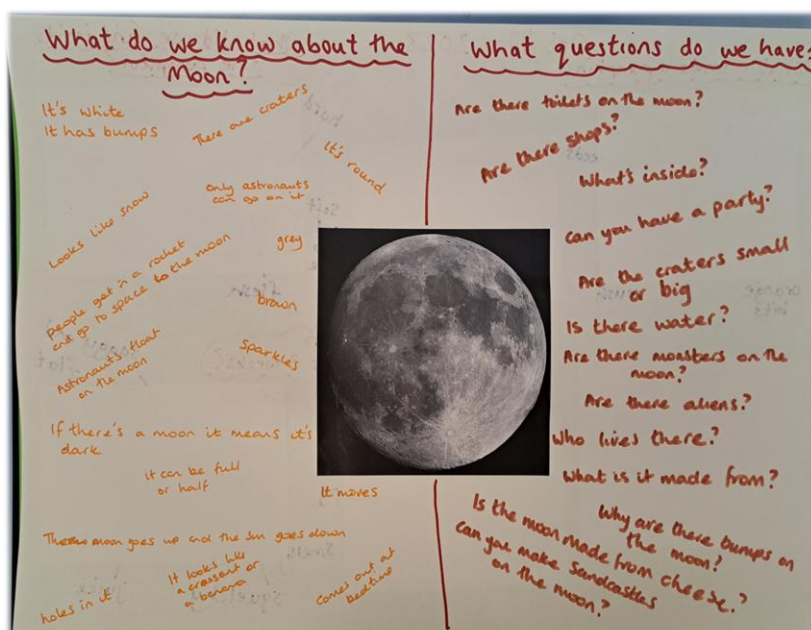 What do we know about the
Moon?
It's white
It has bumps
There are craters
It's round
only astronauts
can go on it
Looks like snow
grey
People get in a rocket
and go to space to the moon
brown
Astronauts float
on the moon
Sparkles
If there's a moon it means it's
dark
it can be full
or half
It moves
moon goes up and the sun goes down
It looks like
a croissant or
a banana
holes in it
comes out at
bedtime
What questions do we have?
Are there toilets on the moon?
Are there shops?
What's inside?
can you have a party?
Are the craters small
or big
Is there water?
Are there monsters on the
moon?
Are there aliens?
Who lives there?
What is it made from?
Why are there bumps on
the moon?
Is the moon made from cheese?
can you make sandcastles
on the moon?